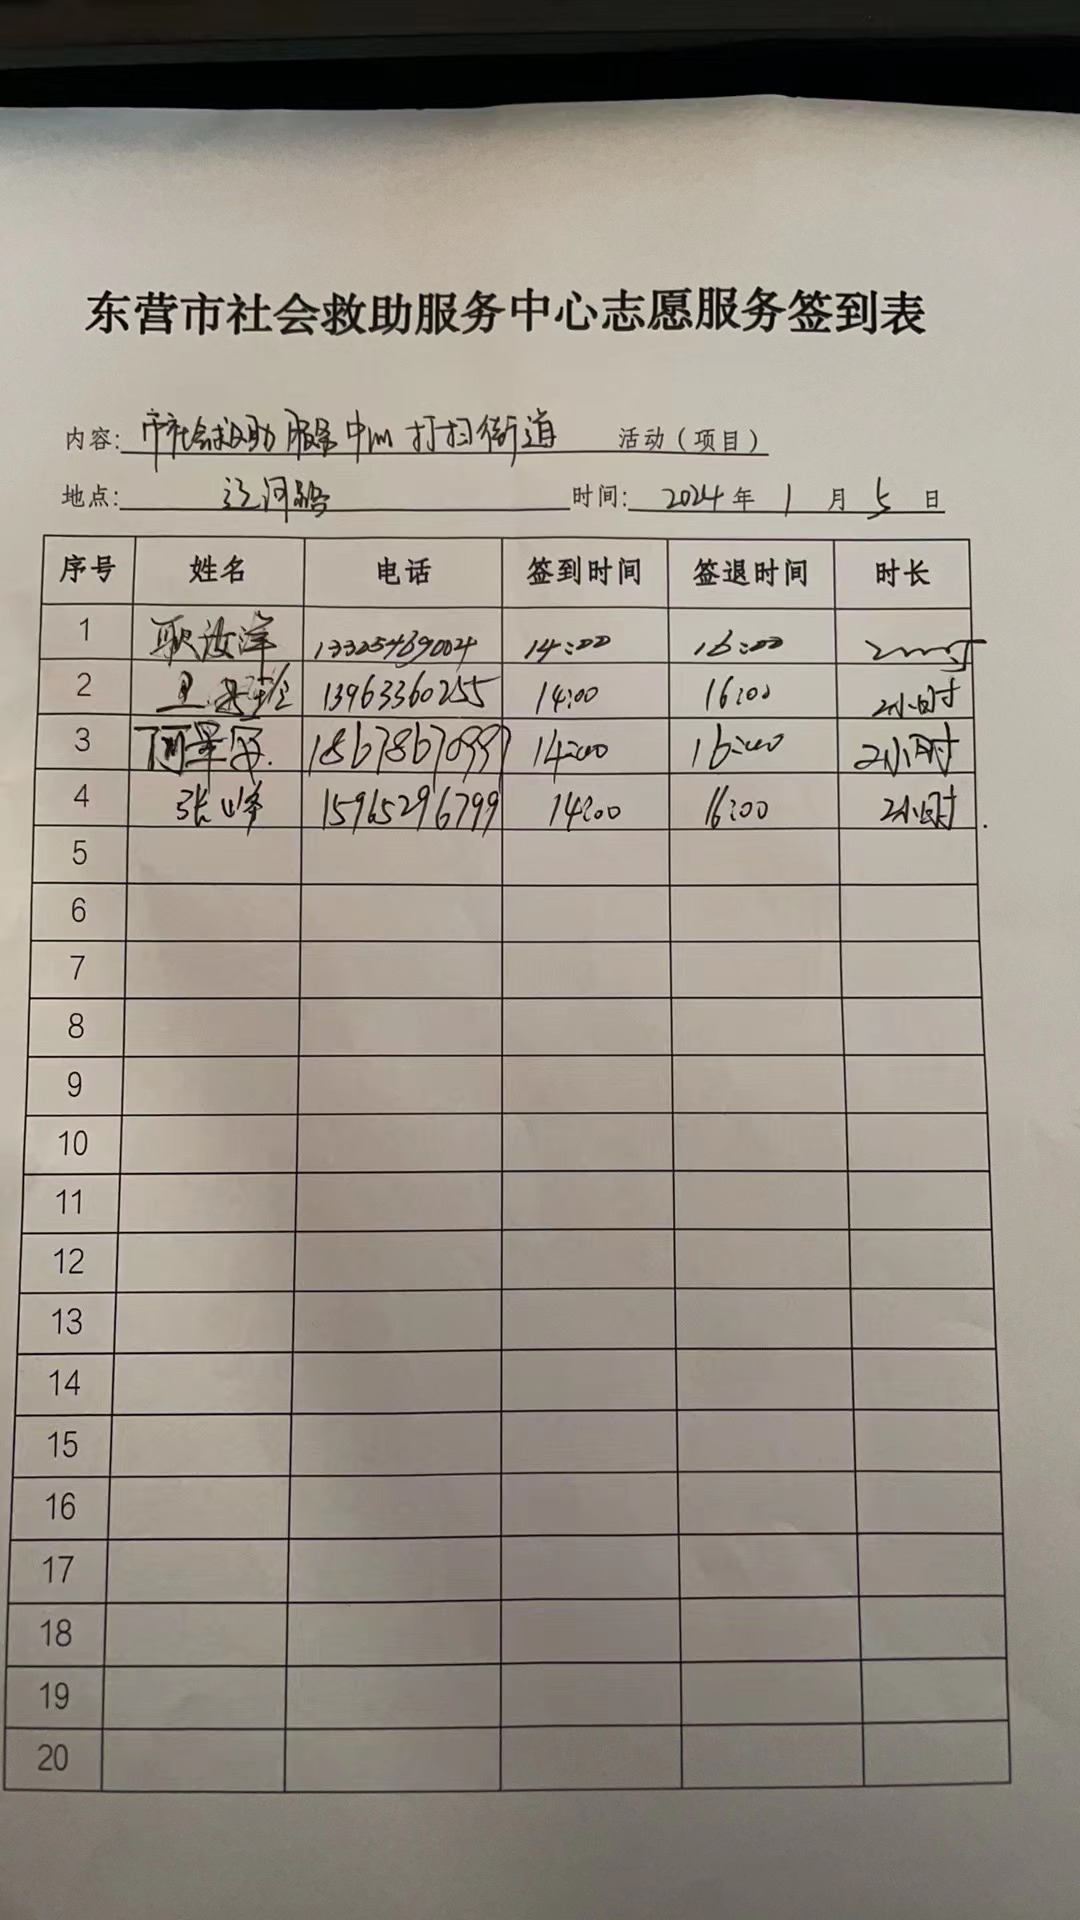 东营市社会救助服务中心志愿服务签到表
内容: 市社会救助服务中心打扫街道 活动（项目）
地点: 辽河路 时间: 2024 年 1 月 5 日
序号 姓名 电话 签到时间 签退时间 时长
1 耿汝洋 13325469004 14:00 16:00 2小时
2 13963360255 14:00 16:00 2小时
3 18678670997 14:00 16:00 2小时
4 张峰 15965296799 14:00 16:00 2小时
5
6
7
8
9
10
11
12
13
14
15
16
17
18
19
20